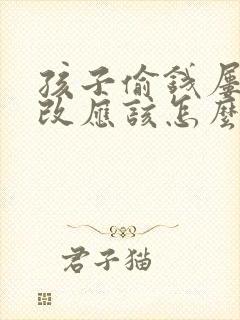 孩子偷錢屢
改應該怎麼
君子猫